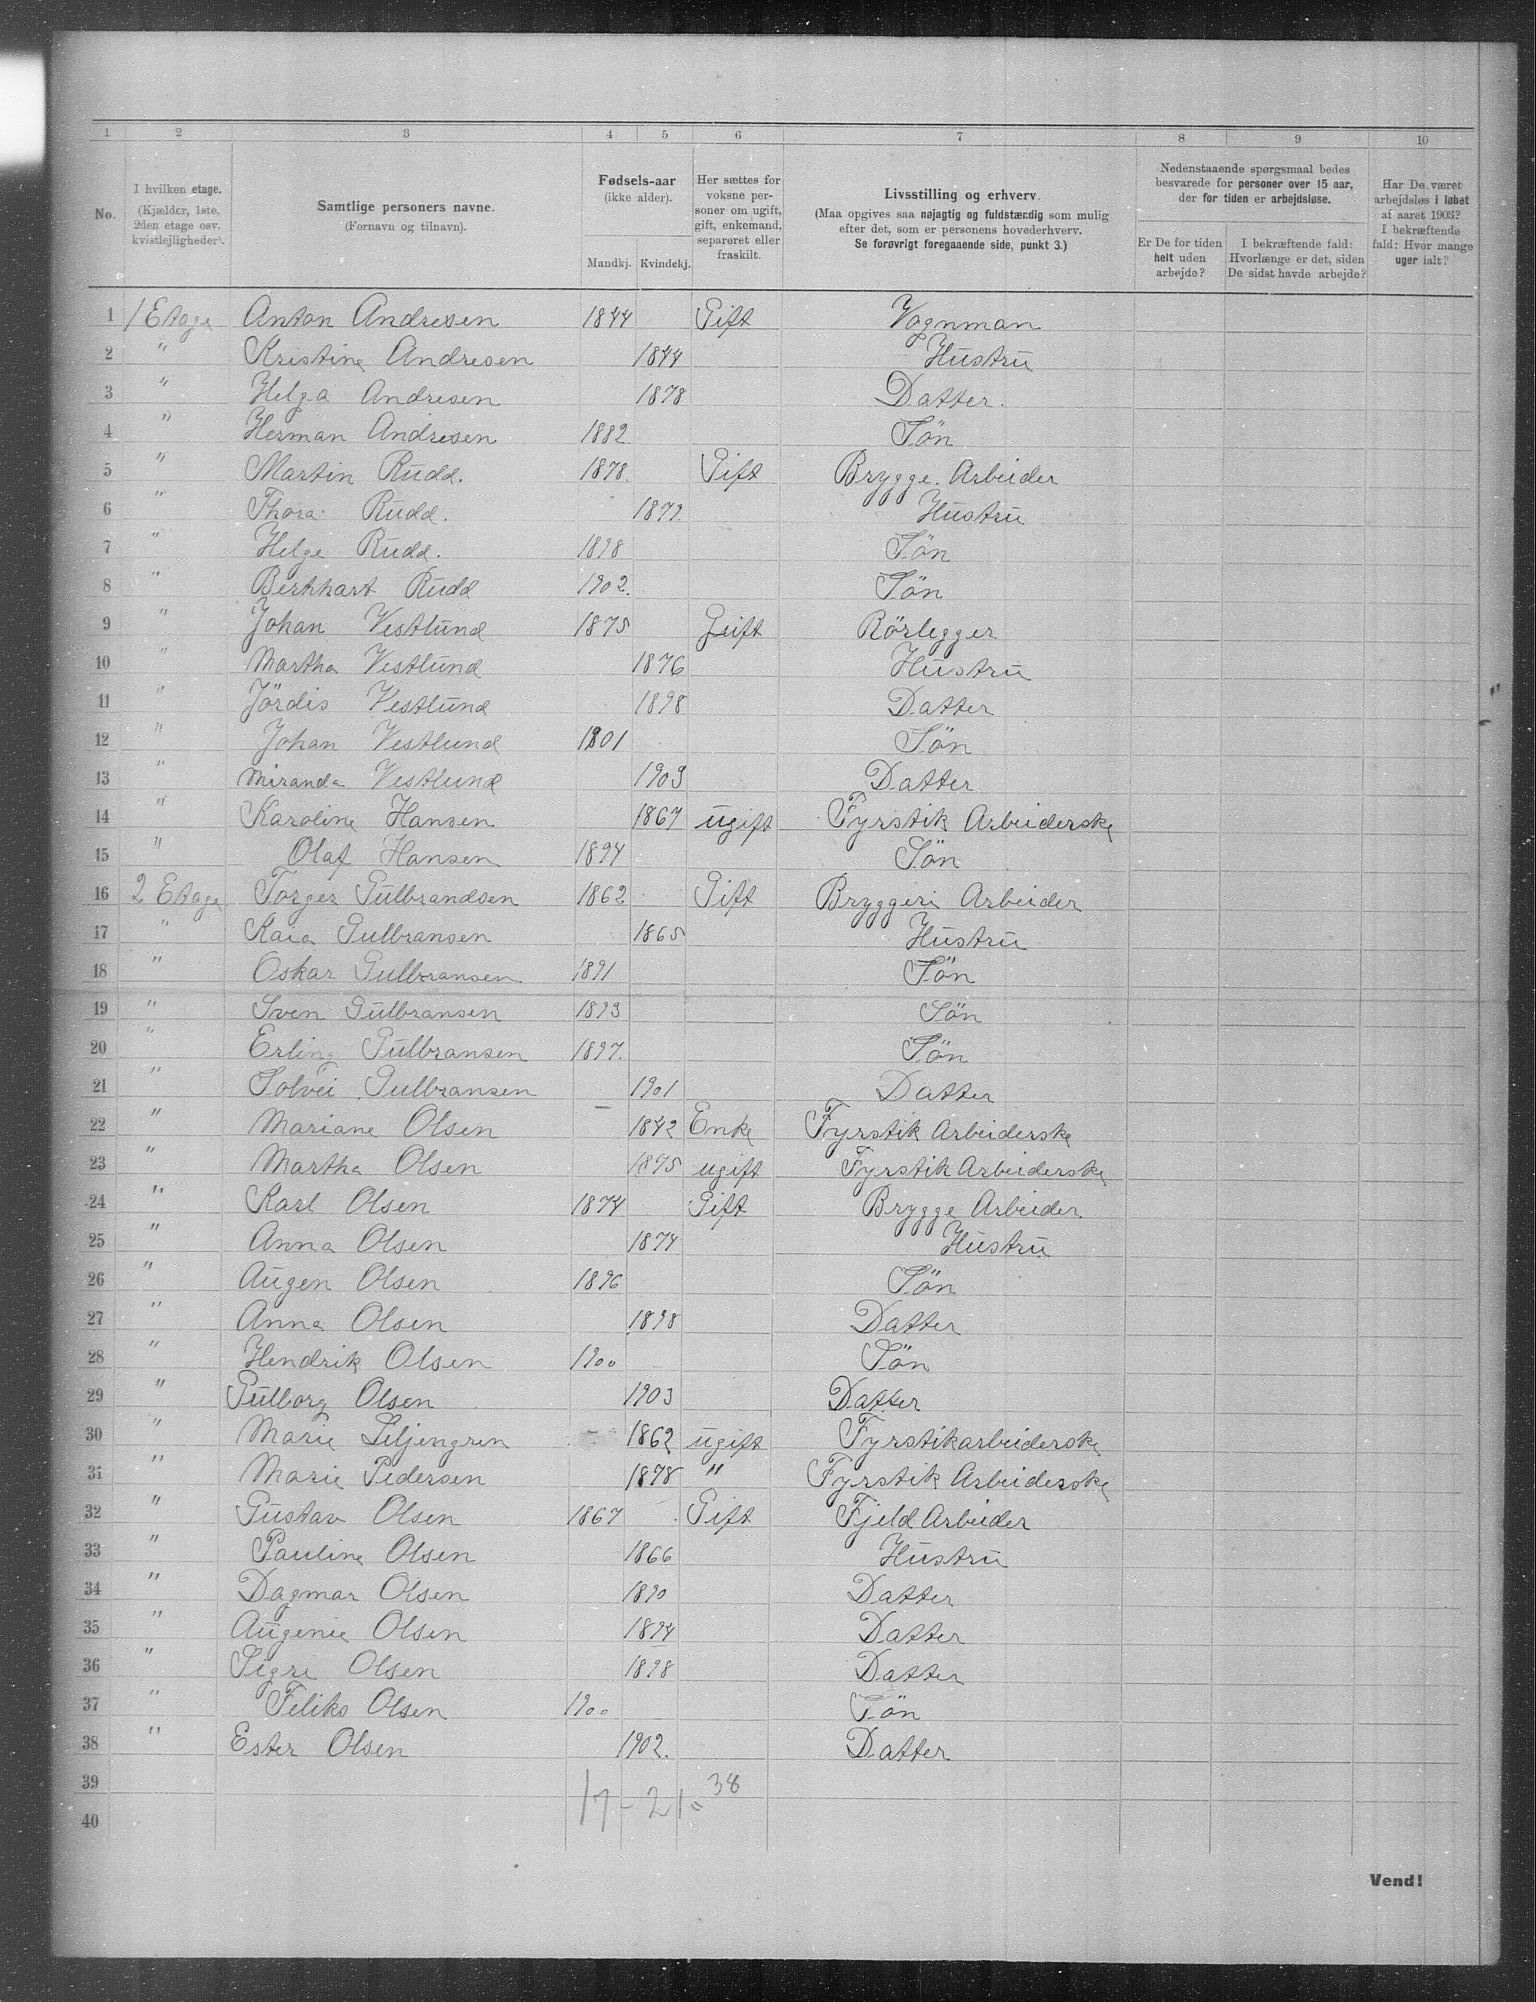 1 2 3 4 5 6 7 8 9 10
No. I hvilken etage. (Kjælder, 1ste, 2den etage osv. kvistlejligheder). Samtlige personers navne. (Fornavn og tilnavn). Fødsels-aar (ikke alder). Mandkj. Kvindekj. Her sættes for voksne personer om ugift, gift, enkemand, separeret eller fraskilt. Livsstilling og erhverv. (Maa opgives saa nøjagtig og fuldstændig som mulig efter det, som er personens hovederhverv. Se forøvrigt foregaaende side, punkt 3.) Nedenstaaende spørgsmaal bedes besvarede for personer over 15 aar, der for tiden er arbejdsløse. Er De for tiden helt uden arbejde? I bekræftende fald: Hvorlænge er det, siden De sidst havde arbejde? Har De været arbejdsløs i løbet af aaret 1903? I bekræftende fald: Hvor mange uger ialt?
1 1 Etage Anton Andresen 1844 Gift Vognman
2 " Kristine Andresen 1844 Hustru
3 " Helga Andresen 1878 Datter.
4 " Herman Andresen 1882 Sön
5 " Martin Rudd. 1878 Gift Brygge. Arbeider
6 " Thora Rudd. 1879. Hustru
7 " Helge Rudd. 1898 Sön
8 " Berhhart Rudd 1902. Sön
9 " Johan Vestlund 1875 Geift Rörlegger
10 " Martha Vestlund 1876 Hustru
11 " Jördis Vestlund 1898 Datter
12 " Johan Vestlund 1901 Sön
13 " Miranda Vestlund 1903 Datter
14 " Karoline Hansen 1867 ugift Fyrstik Arbeiderske
15 " Olaf Hansen 1894 Sön
16 2 Etage Torger Gulbrandsen 1862 Gift Bryggeri Arbeider
17 " Kaia Gulbransen 1865 Hustru
18 " Oskar Gulbransen 1891 Sön
19 " Sven Gulbransen 1893 Sön
20 " Erling Gulbransen 1897. Sön
21 " Solvei Gulbransen 1901 Datter
22 " Mariane Olsen 1842 Enke Fyrstik Arbeiderske
23 " Martha Olsen 1875 ugift Fyrstik Arbeiderske
24 " Karl Olsen 1874 Gift Brygge Arbeider
25 " Anna Olsen 1874 Hustru
26 " Augen Olsen 1896 Sön
27 " Anna Olsen 1898 Datter
28 " Hendrik Olsen 1900 Sön
29 " Gulborg Olsen 1903 Datter
30 " Marie Liljengren 1862 ugift Fyrstikarbeiderske
31 " Marie Pedersen 1878 " Fyrstik Arbeiderske
32 " Gustav Olsen 1867 Gift Fjeld Arbeider
33 " Pauline Olsen 1866 Hustru
34 " Dagmar Olsen 1890 Datter
35 " Augenie Olsen 1894 Datter
36 " Sigri Olsen 1898 Datter
37 " Feliks Olsen 1900 Sön
38 " Ester Olsen 1902. Datter
39
17 - 21 " 38
40
Vend!